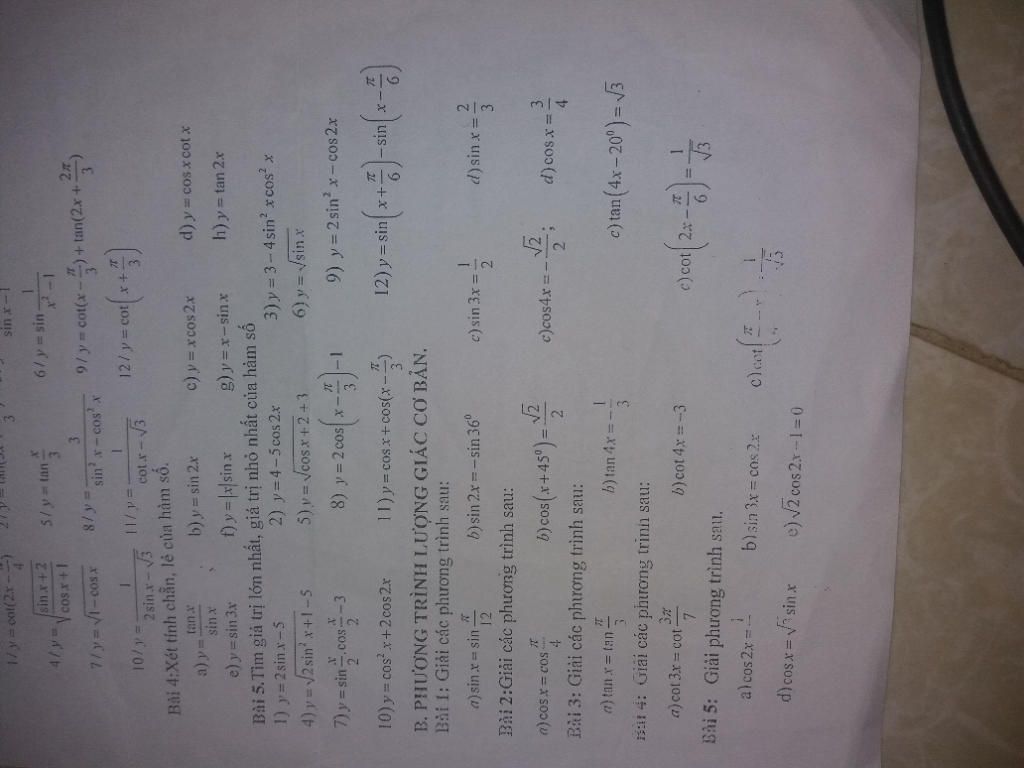 1/ y = cot(2x − π/4) 2/ y = tan 3 sin x − 1
4/ y = √((sin x + 2)/(cos x + 1)) 5/ y = tan x/3 6/ y = sin 1/(x² − 1)
7/ y = √(1 − cos x) 8/ y = 3/(sin² x − cos² x) 9/ y = cot(x − π/3) + tan(2x + 2π/3)
10/ y = 1/(2 sin x − √3) 11/ y = 1/(cot x − √3) 12/ y = cot(x + π/3)
Bài 4:Xét tính chẵn, lẻ của hàm số.
a) y = tan x/sin x b) y = sin 2x c) y = x cos 2x d) y = cos x cot x
e) y = sin 3x f) y = |x| sin x g) y = x − sin x h) y = tan 2x
Bài 5.Tìm giá trị lớn nhất, giá trị nhỏ nhất của hàm số
1) y = 2 sin x − 5 2) y = 4 − 5 cos 2x 3) y = 3 − 4 sin² x cos² x
4) y = √(2 sin² x + 1) − 5 5) y = √(cos x + 2) + 3 6) y = √(sin x)
7) y = sin x/2 . cos x/2 − 3 8) y = 2 cos(x − π/3) − 1 9) y = 2 sin² x − cos 2x
10) y = cos² x + 2 cos 2x 11) y = cos x + cos(x − π/3) 12) y = sin(x + π/6) − sin(x − π/6)
B. PHƯƠNG TRÌNH LƯỢNG GIÁC CƠ BẢN.
Bài 1: Giải các phương trình sau:
a) sin x = sin π/12 b) sin 2x = − sin 36⁰ c) sin 3x = 1/2 d) sin x = 2/3
Bài 2:Giải các phương trình sau:
a) cos x = cos π/4 b) cos(x + 45⁰) = √2/2 c) cos 4x = − √2/2; d) cos x = 3/4
Bài 3: Giải các phương trình sau:
a) tan x = tan π/3 b) tan 4x = − 1/3 c) tan(4x − 20⁰) = √3
Bài 4: Giải các phương trình sau:
a) cot 3x = cot 3π/7 b) cot 4x = −3 c) cot(2x − π/6) = 1/√3
Bài 5: Giải phương trình sau.
a) cos 2x = b) sin 3x = cos 2x c) cot
d) cos x = √3 sin x e) √2 cos 2x − 1 = 0